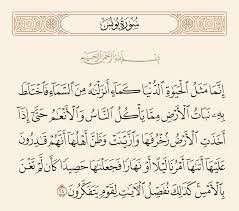 سُورَةُ يُونُسَ
بِسْمِ اللَّهِ الرَّحْمَٰنِ الرَّحِيمِ
إِنَّمَا مَثَلُ الْحَيَوٰةِ الدُّنْيَا كَمَآءٍ أَنزَلْنَٰهُ مِنَ السَّمَآءِ فَاخْتَلَطَ
بِهِۦ نَبَاتُ الْأَرْضِ مِمَّا يَأْكُلُ النَّاسُ وَالْأَنْعَٰمُ حَتَّىٰٓ إِذَآ
أَخَذَتِ الْأَرْضُ زُخْرُفَهَا وَازَّيَّنَتْ وَظَنَّ أَهْلُهَآ أَنَّهُمْ قَٰدِرُونَ
عَلَيْهَآ أَتَىٰهَآ أَمْرُنَا لَيْلًا أَوْ نَهَارًا فَجَعَلْنَٰهَا حَصِيدًا كَأَن لَّمْ تَغْنَ
بِالْأَمْسِ ۚ كَذَٰلِكَ نُفَصِّلُ الْءَايَٰتِ لِقَوْمٍ يَتَفَكَّرُونَ ٢٤